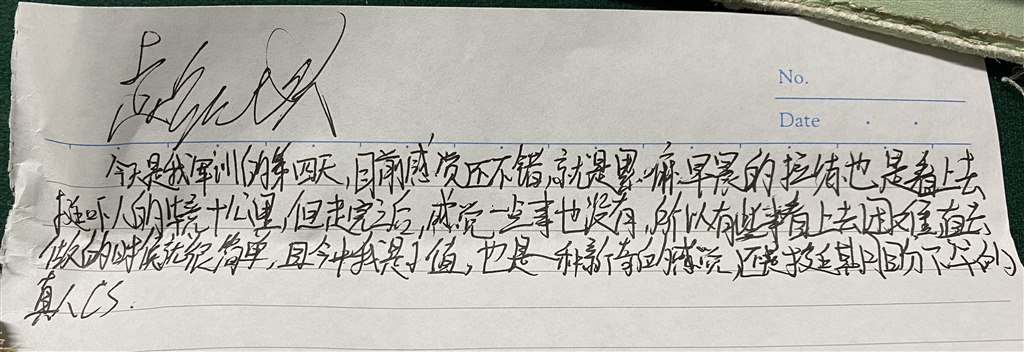 No.
Date
今天是我军训的第四天,目前感觉还不错,就是累,痛.早晨的拉练也是看上去
挺吓人的,十公里,但走完之后,感觉一点事也没有,所以有些事看上去困难,真去
做的时候就很简单,且今中我是了值,也是一种新奇的感觉,还挺期目下午的
真人CS.